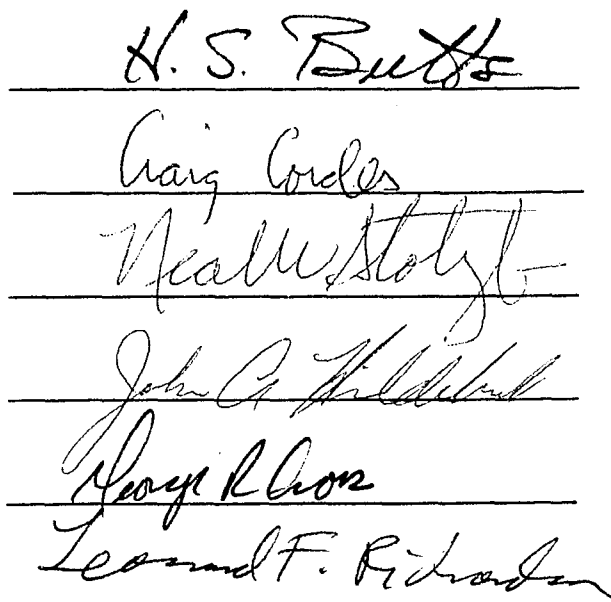 H. S. Butts
Craig Cordes
Neal W Stoltzfus
John A Hildebrant
George R Cross
Leonard F. Richardson